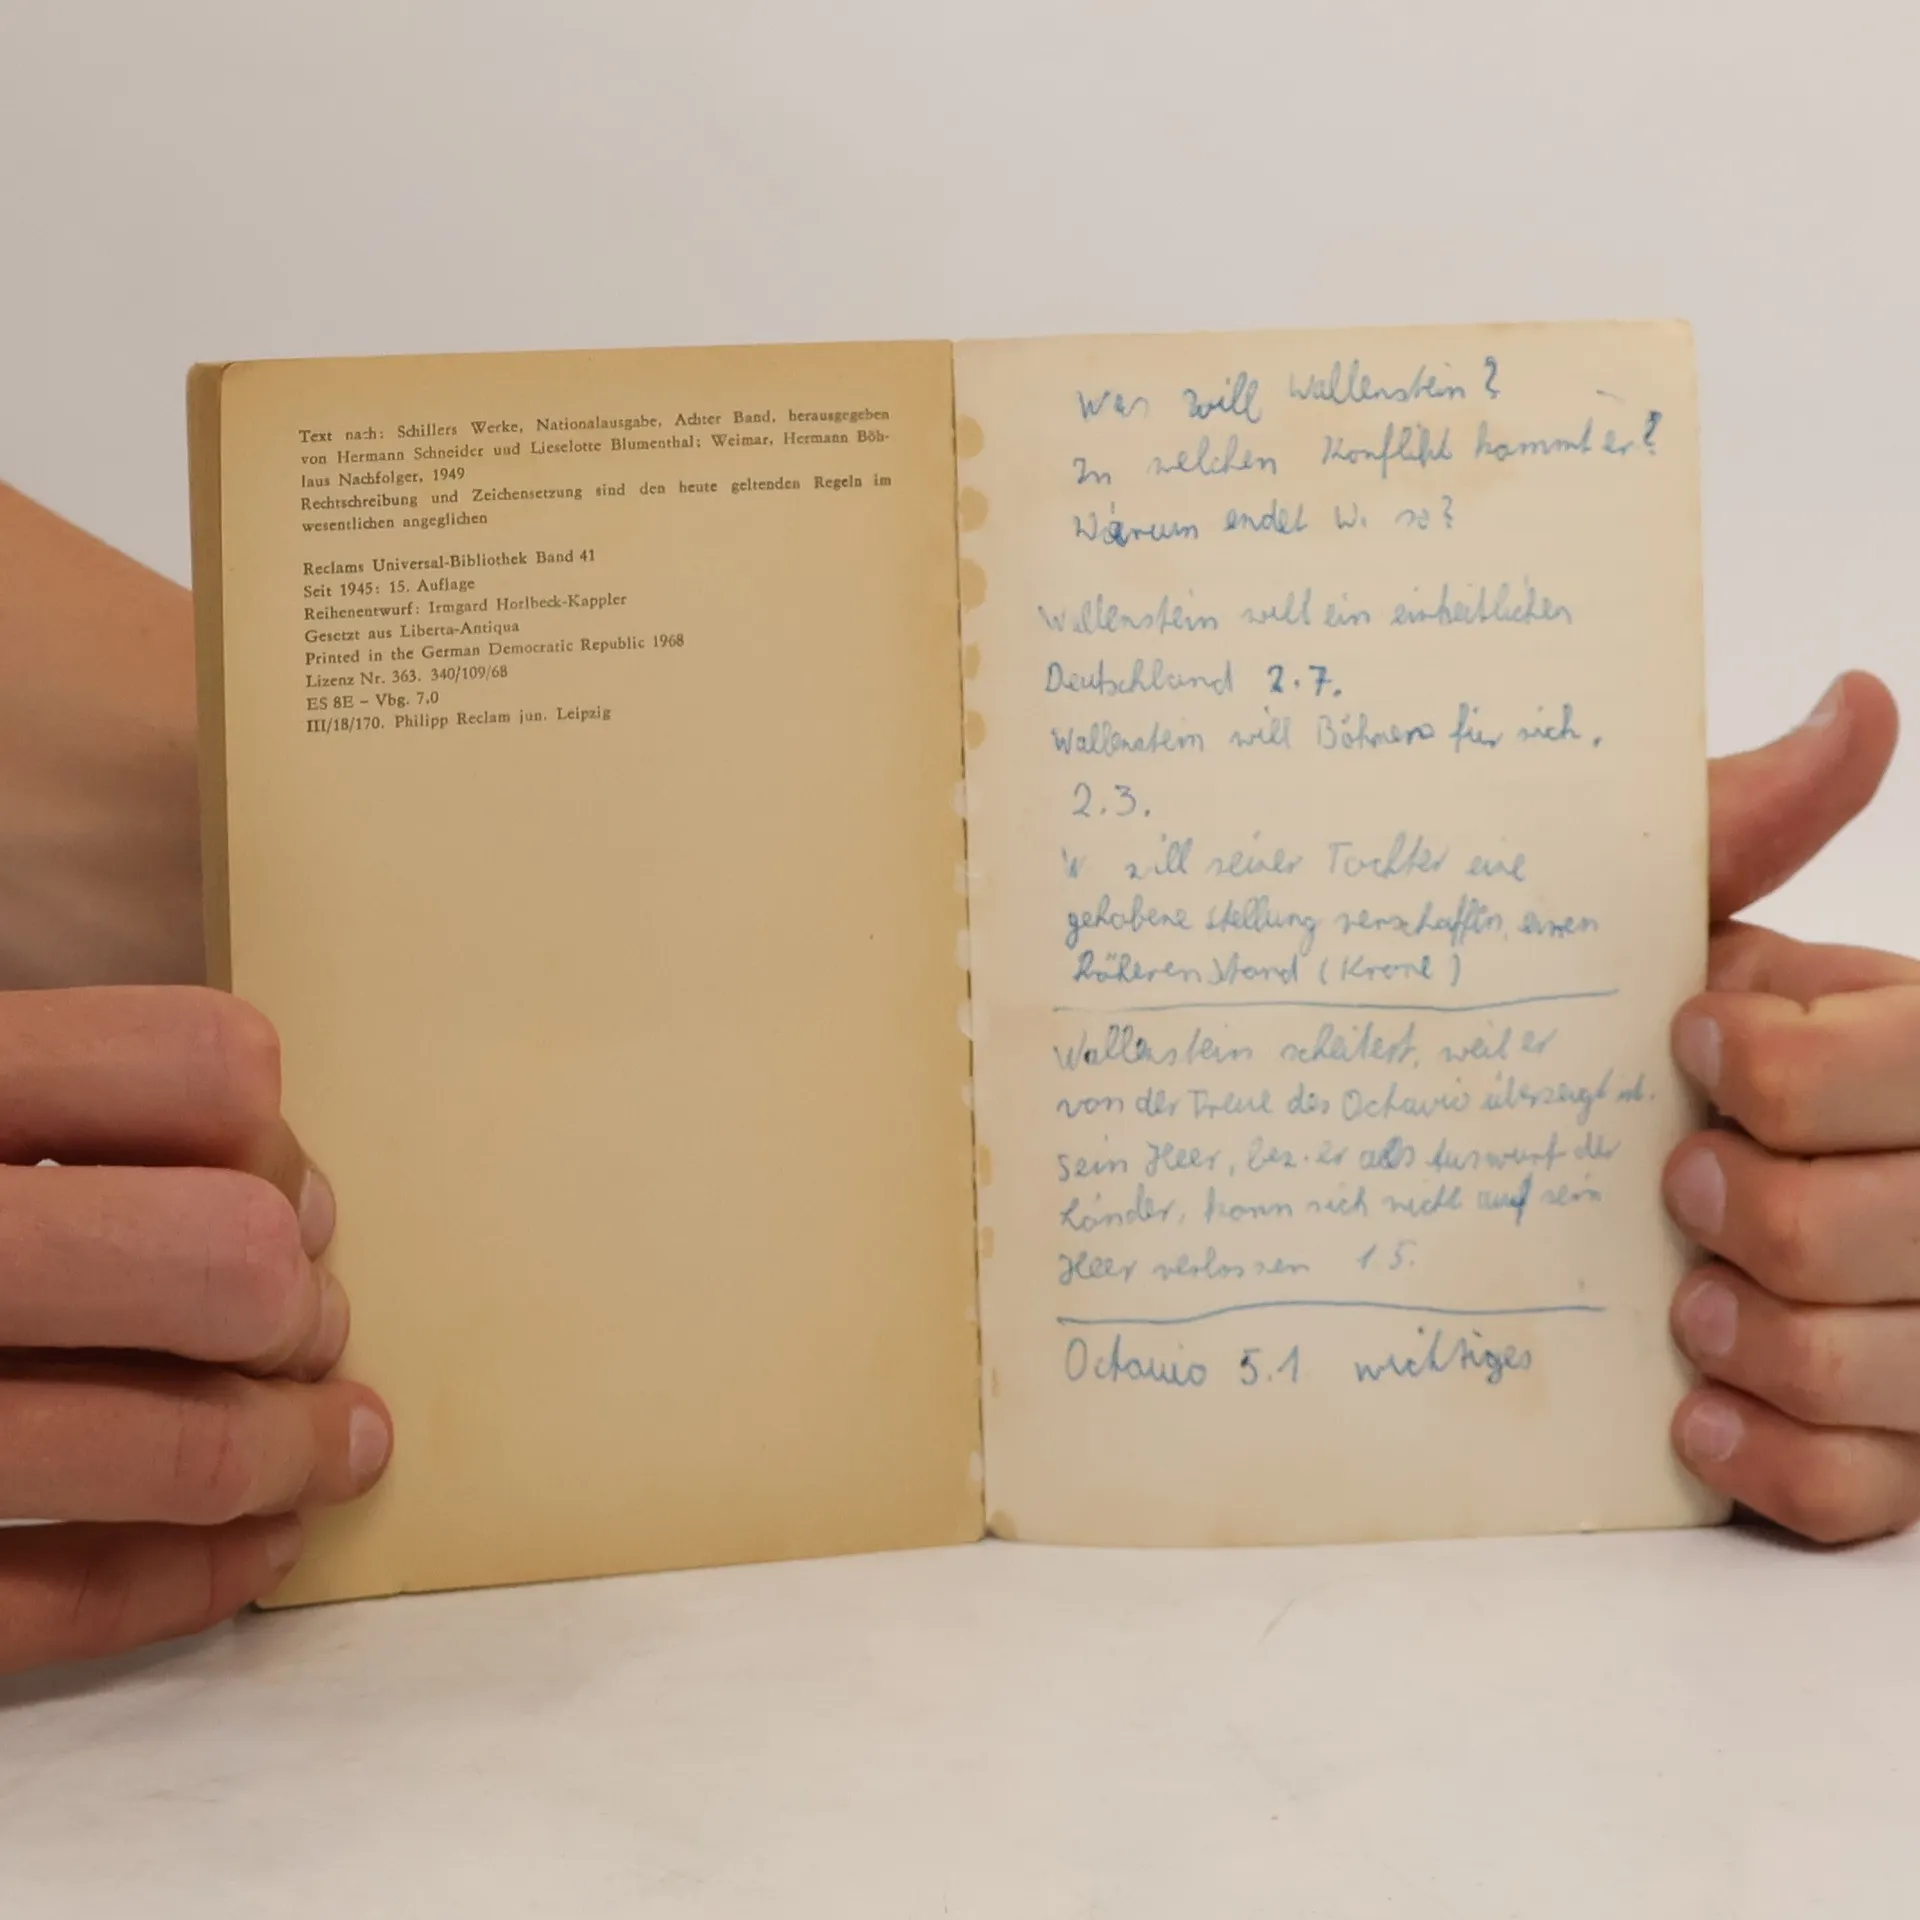 Text nach: Schillers Werke, Nationalausgabe, Achter Band, herausgegeben
von Hermann Schneider und Lieselotte Blumenthal; Weimar, Hermann Böh-
laus Nachfolger, 1949
Rechtschreibung und Zeichensetzung sind den heute geltenden Regeln im
wesentlichen angeglichen
Reclams Universal-Bibliothek Band 41
Seit 1945: 15. Auflage
Reihenentwurf: Irmgard Horlbeck-Kappler
Gesetzt aus Liberta-Antiqua
Printed in the German Democratic Republic 1968
Lizenz Nr. 363. 340/109/68
ES 8E – Vbg. 7,0
III/18/170. Philipp Reclam jun. Leipzig
Was will Wallenstein?
In welchen Konflikt kommt er?
Warum endet W. so?
Wallenstein will ein einheitliches
Deutschland 2.7.
Wallenstein will Böhmen für sich.
2.3.
W will seiner Tochter eine
gehobene Stellung verschaffen, einen
höheren Stand (Krone)
Wallenstein scheitert, weil er
von der Treue des Octavio überzeugt ist.
Sein Heer, bez. er als Auswurf der
Länder, kann sich nicht auf sein
Heer verlassen 1.5.
Octavio 5.1 wichtiges